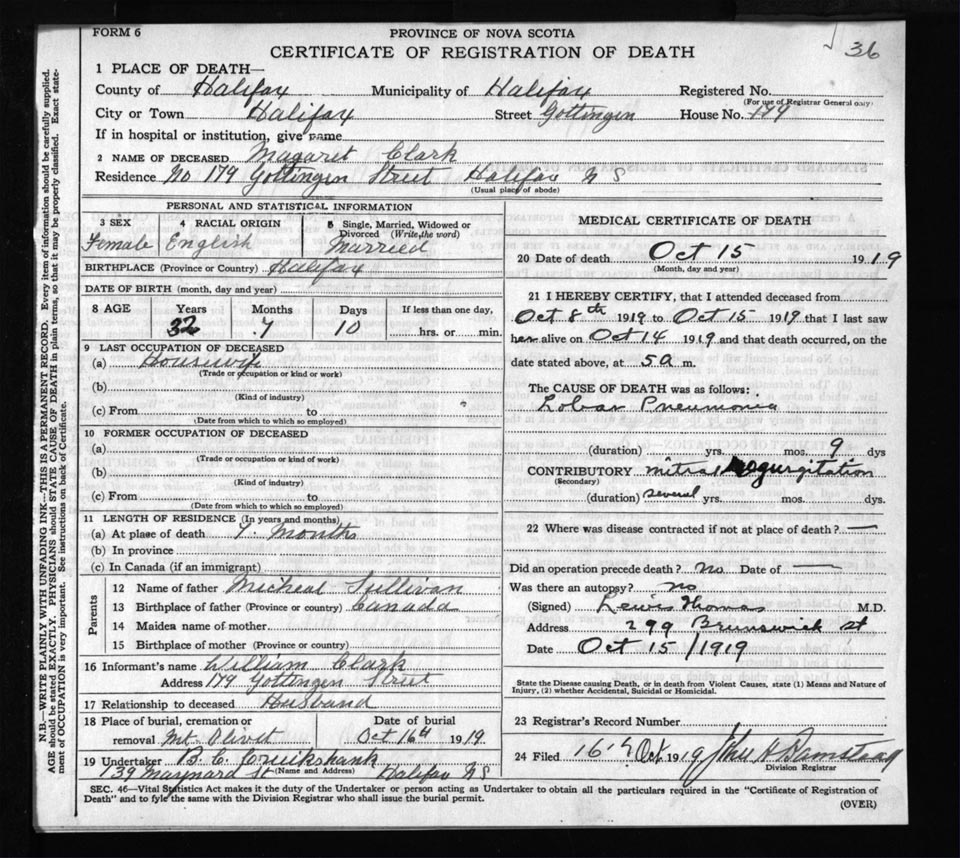 FORM 6
PROVINCE OF NOVA SCOTIA
36
CERTIFICATE OF REGISTRATION OF DEATH
1 PLACE OF DEATH—
County of Halifax Municipality of Halifax Registered No.
(For use of Registrar General only)
City or Town Halifax Street Gottingen House No. 179
If in hospital or institution, give name
2 NAME OF DECEASED Magaret Clark
Residence No 179 Gottingen Street Halifax N S
(Usual place of abode)
PERSONAL AND STATISTICAL INFORMATION
3 SEX 4 RACIAL ORIGIN 5 Single, Married, Widowed or
Divorced (Write the word)
Female English Married
BIRTHPLACE (Province or Country) Halifax
DATE OF BIRTH (month, day and year)
8 AGE Years Months Days If less than one day,
32 7 10 hrs. or min.
9 LAST OCCUPATION OF DECEASED
(a) Housewife
(Trade or occupation or kind or work)
(b)
(Kind of industry)
(c) From to
(Date from which to which so employed)
10 FORMER OCCUPATION OF DECEASED
(a)
(Trade or occupation or kind or work)
(b)
(Kind of industry)
(c) From to
(Date from which to which so employed)
11 LENGTH OF RESIDENCE (In years and months)
(a) At place of death 7. Months
(b) In province
(c) In Canada (if an immigrant)
Parents
12 Name of father Micheal Sullivan
13 Birthplace of father (Province or country) Canada
14 Maiden name of mother
15 Birthplace of mother (Province or country)
16 Informant's name William Clark
Address 179 Gottingen Street
17 Relationship to deceased Husband
18 Place of burial, cremation or Date of burial
removal Mt. Olivet Oct 16th 1919.
19 Undertaker B. C. Cruikshank
139 Maynard St (Name and Address) Halifax NS
MEDICAL CERTIFICATE OF DEATH
20 Date of death Oct 15 1919
(Month, day and year)
21 I HEREBY CERTIFY, that I attended deceased from
Oct 8th 1919 to Oct 15 1919 that I last saw
her alive on Oct 14 1919 and that death occurred, on the
date stated above, at 5 a. m.
The CAUSE OF DEATH was as follows:
Lobar Pneumonia
(duration) yrs. mos. 9 dys
CONTRIBUTORY mitral regurgitation
(Secondary)
(duration) several yrs. mos. dys.
22 Where was disease contracted if not at place of death? —
Did an operation precede death? no Date of —
Was there an autopsy? no
(Signed) Lewis Thomas M.D.
Address 299 Brunswick St
Date Oct 15/1919
State the Disease causing Death, or in death from Violent Causes, state (1) Means and Nature of
Injury, (2) whether Accidental, Suicidal or Homicidal.
23 Registrar's Record Number
24 Filed 16. Oct 1919
Division Registrar
SEC. 46—Vital Statistics Act makes it the duty of the Undertaker or person acting as Undertaker to obtain all the particulars required in the "Certificate of Registration of
Death" and to fyle the same with the Division Registrar who shall issue the burial permit.
(OVER)
N.B.—WRITE PLAINLY WITH UNFADING INK—THIS IS A PERMANENT RECORD. Every item of information should be carefully supplied.
AGE should be stated EXACTLY. PHYSICIANS should STATE CAUSE OF DEATH in plain terms, so that it may be properly classified. Exact state-
ment of OCCUPATION is very important. See instructions on back of Certificate.